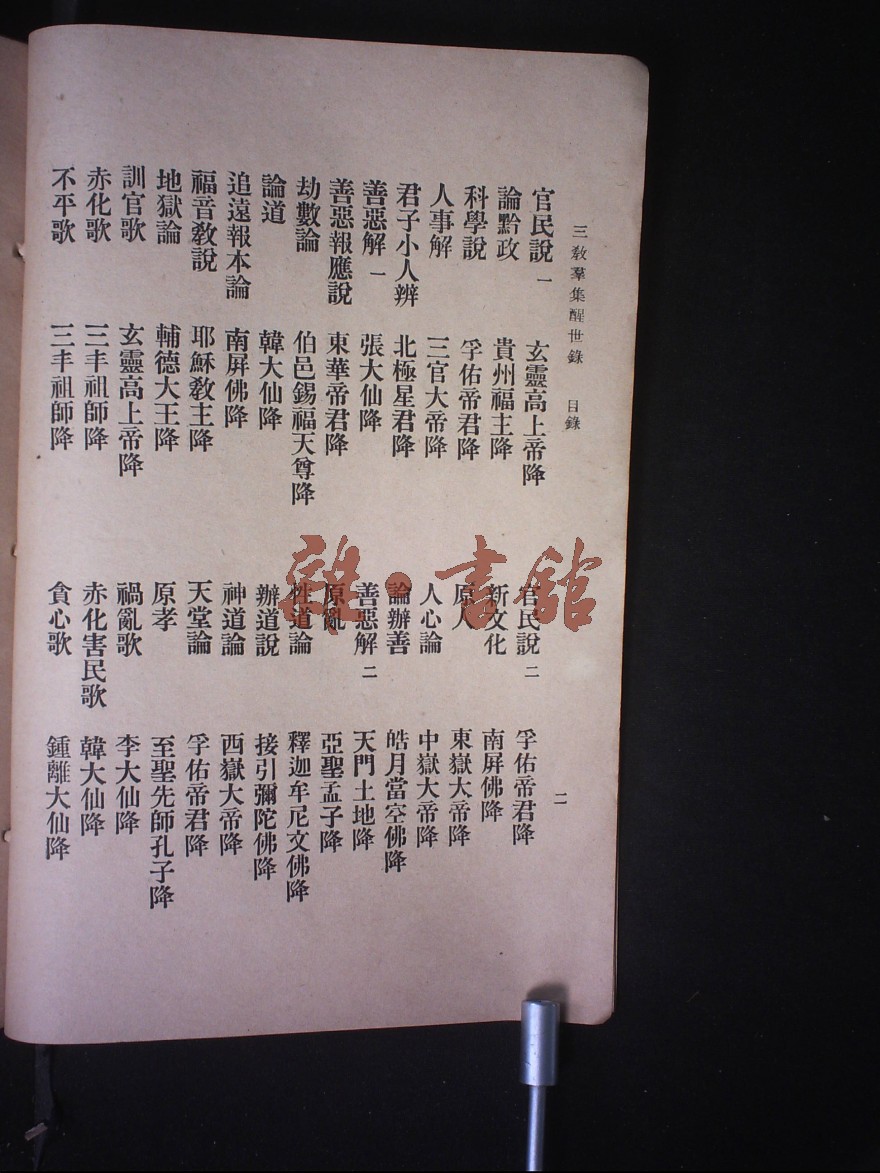 三教羣集醒世錄 目錄 二
官民說一 玄靈高上帝降 官民說二 孚佑帝君降
論黔政 貴州福主降 新文化 南屏佛降
科學說 孚佑帝君降 原人 東嶽大帝降
人事解 三官大帝降 人心論 中嶽大帝降
君子小人辨 北極星君降 論辦善 皓月當空佛降
善惡解一 張大仙降 善惡解二 天門土地降
善惡報應說 東華帝君降 原亂 亞聖孟子降
劫數論 伯邑錫福天尊降 性道論 釋迦牟尼文佛降
論道 韓大仙降 辦道說 接引彌陀佛降
追遠報本論 南屏佛降 神道論 西嶽大帝降
福音教說 耶穌教主降 天堂論 孚佑帝君降
地獄論 輔德大王降 原孝 至聖先師孔子降
訓官歌 玄靈高上帝降 禍亂歌 李大仙降
赤化歌 三丰祖師降 赤化害民歌 韓大仙降
不平歌 三丰祖師降 貪心歌 鍾離大仙降
雜·書館